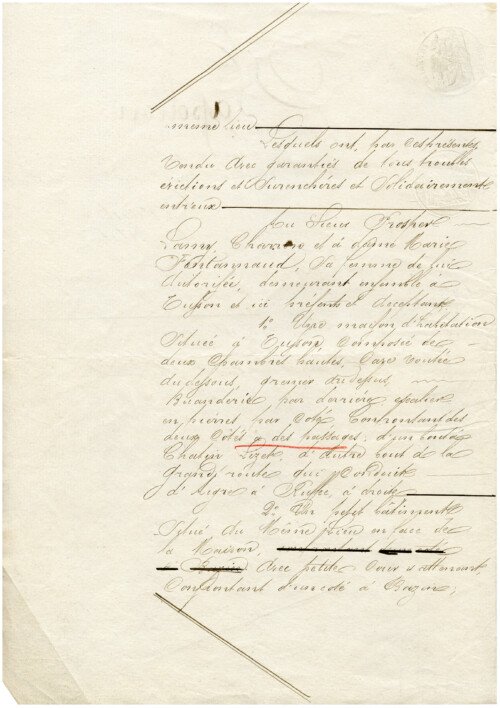 mesme lieu
Lesquels ont, par ces présentes,
Vendu avec garanties de tous troubles
evictions et Surenchères et Solidairement
entr'eux
Au Sieur Prosper
Lamy, Charron et à dame Marie
Fontannaud, Sa femme de lui
Autorisée, demeurant ensemble à
Tusson et ici présents et acceptant
1º Une maison d'habitation
Située à Tusson Composée de
deux Chambres hautes, Cave voutée
au dessous, grenier au dessus,
Buanderie par derrière
en pierres par Coté Confrontant des
deux Côtés à des passages, d'un bout à
à autre bout de la
grande route qui Conduit
d'Aigre à Ruffec, à droite
2º Un petit bâtiment
Situé du Même lieu en face de
la Maison,
avec petite Cour y attenant,
Confrontant d'un côté à